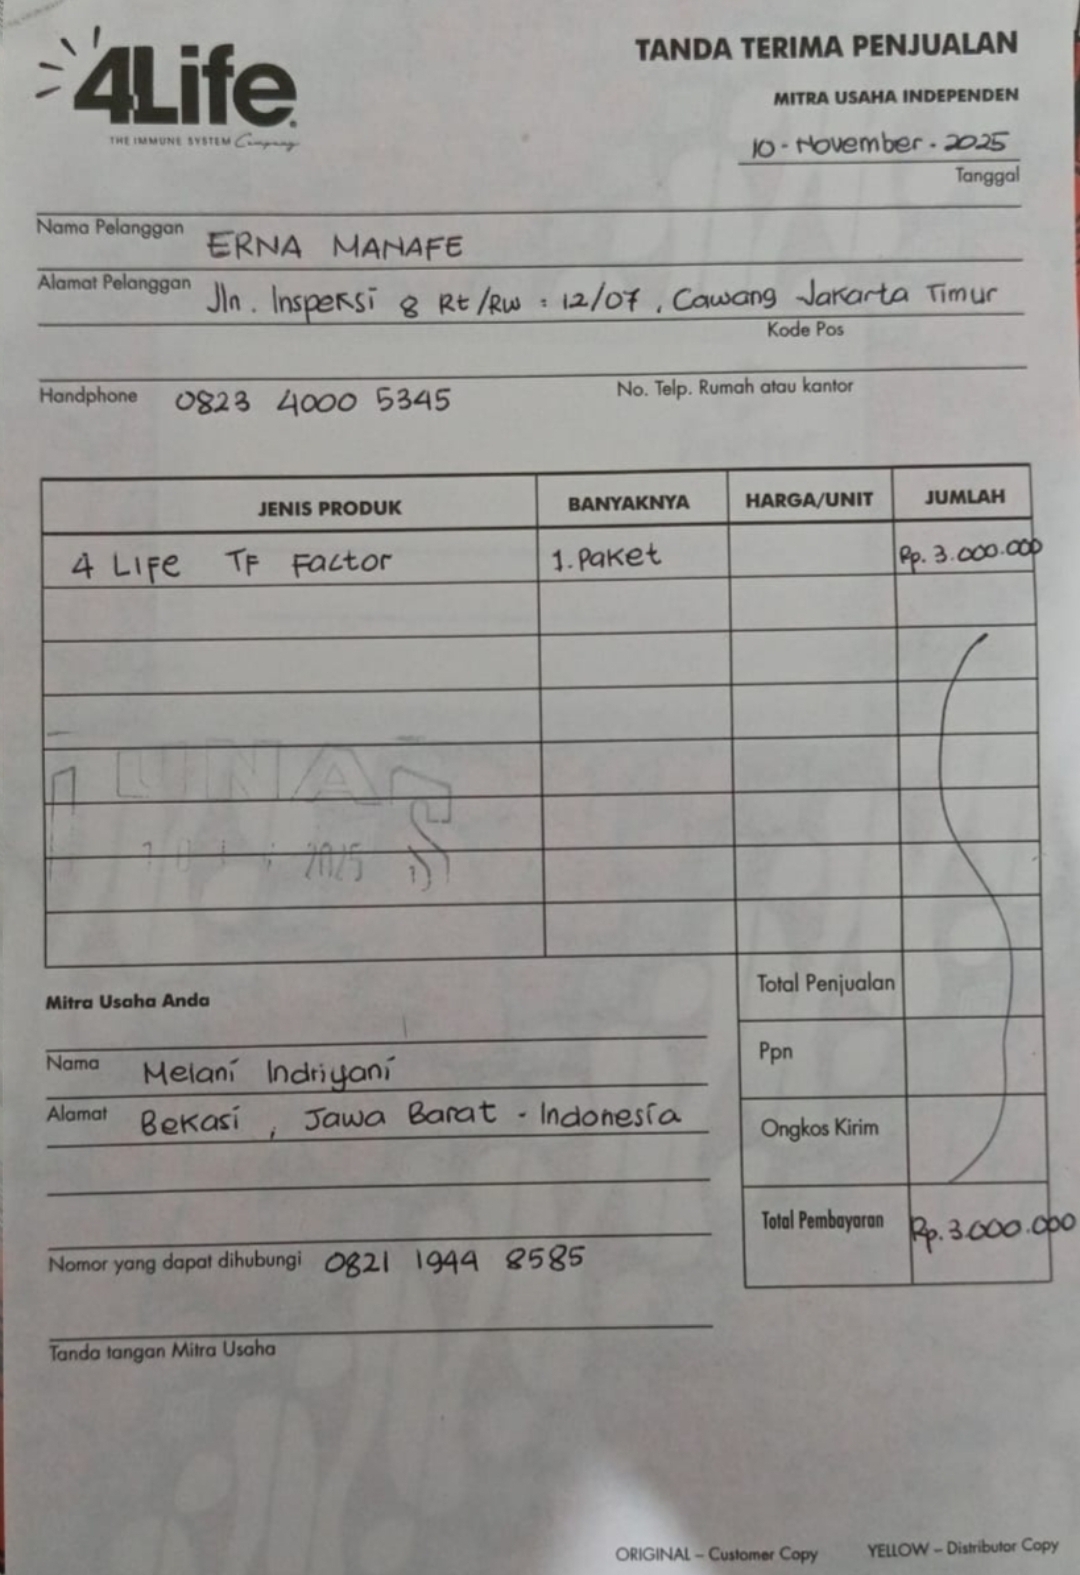 4Life
THE IMMUNE SYSTEM Company
TANDA TERIMA PENJUALAN
MITRA USAHA INDEPENDEN
10 - November - 2025
Tanggal
Nama Pelanggan ERNA MANAFE
Alamat Pelanggan Jln. Inspeksi 8 Rt/Rw : 12/07, Cawang Jakarta Timur
Kode Pos
Handphone 0823 4000 5345 No. Telp. Rumah atau kantor
JENIS PRODUK BANYAKNYA HARGA/UNIT JUMLAH
4 LIFE TF Factor 1. Paket Rp. 3.000.000
LUNAS
2025
Total Penjualan
Mitra Usaha Anda
Ppn
Nama Melani Indriyani
Alamat Bekasi, Jawa Barat - Indonesia
Ongkos Kirim
Total Pembayaran Rp. 3.000.000
Nomor yang dapat dihubungi 0821 1944 8585
Tanda tangan Mitra Usaha
ORIGINAL – Customer Copy YELLOW – Distributor Copy